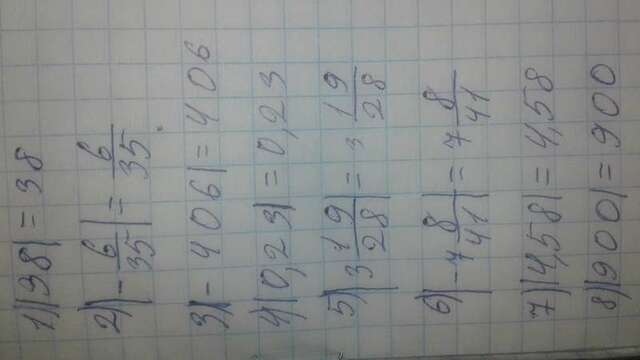 1) |38| = 38
2) |-6/35| = 6/35
3) |-406| = 406
4) |0,23| = 0,23
5) |3 19/28| = 3 19/28
6) |-7 8/41| = 7 8/41
7) |4,58| = 4,58
8) |900| = 900